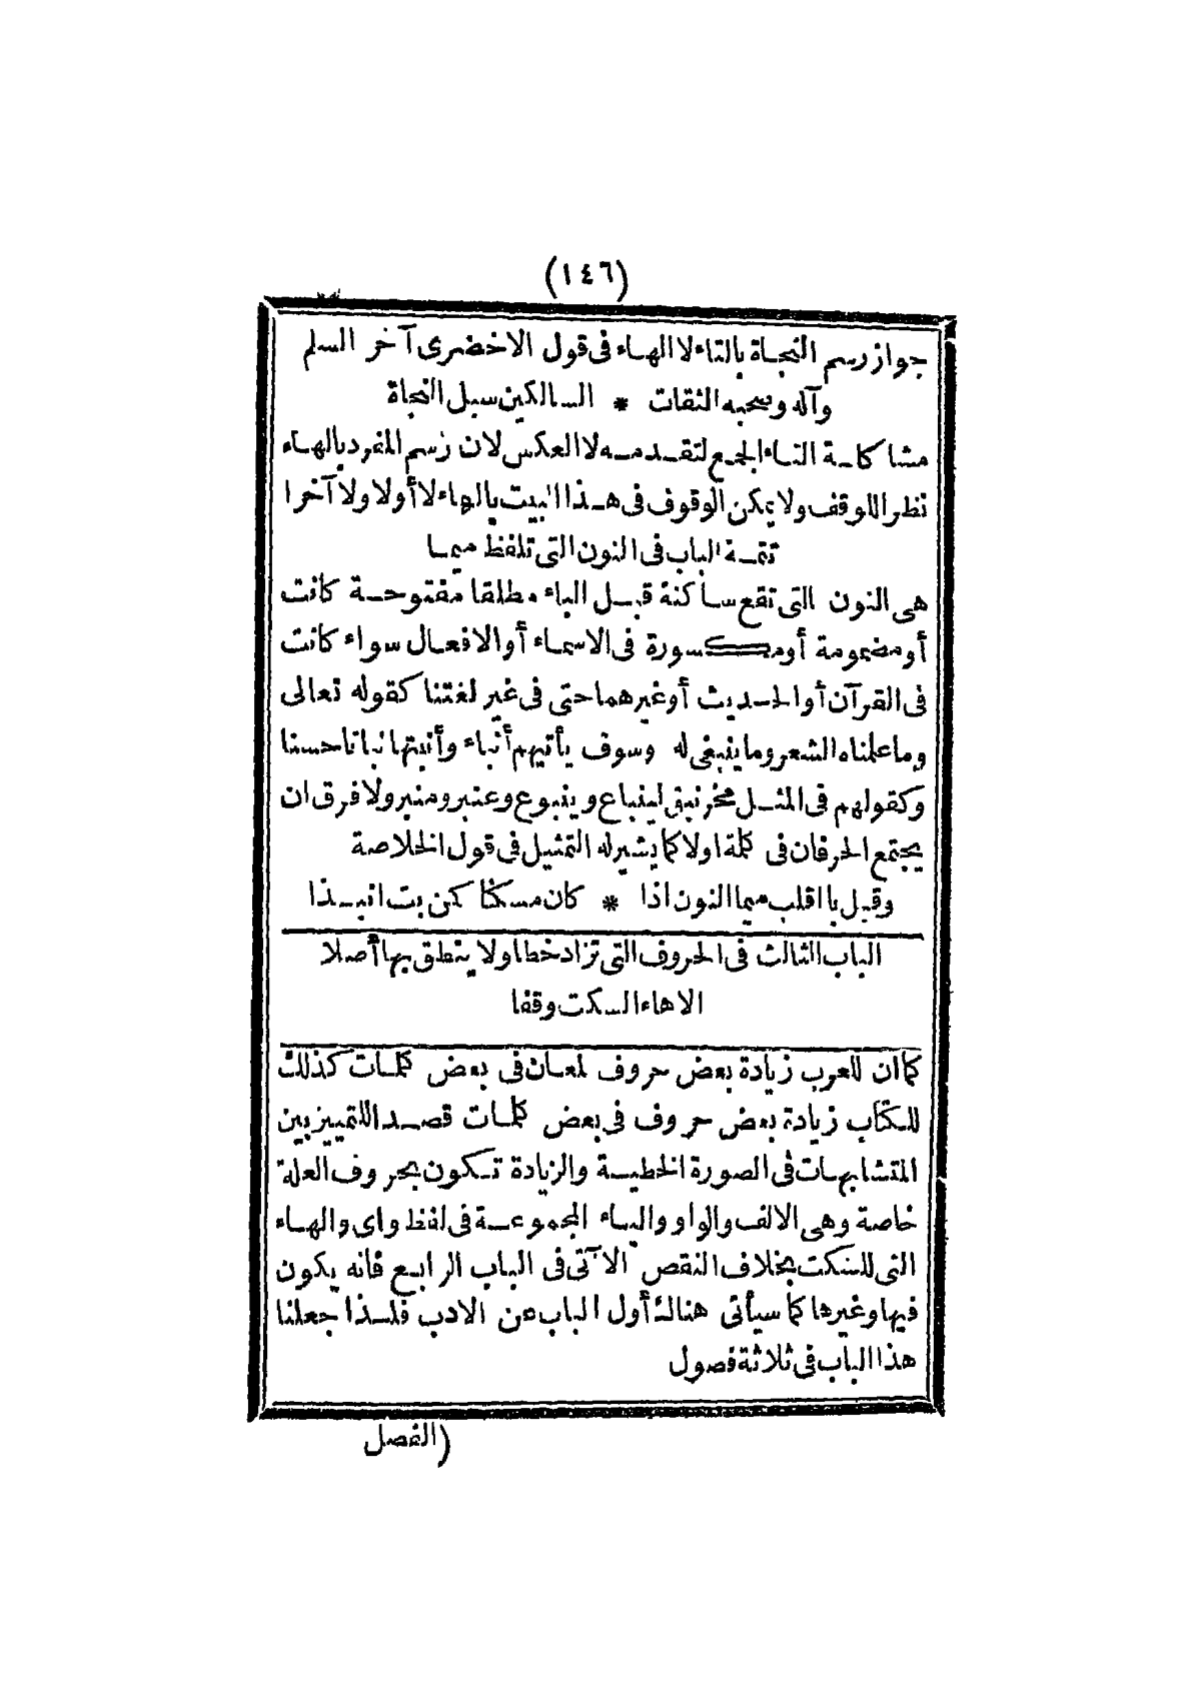 (١٤٦)
جواز رسم النجاة بالتاء لا الهاء فى قول الاخضرى آخر السلم
وآله وصحبه الثقات * السالكين سبل النجاة
مشاكلة التاء الجمع لتقدمه لا العكس لان رسم المفرد بالهاء
نظرا للوقف ولا يمكن الوقوف فى هذا البيت بالهاء لا أولا ولا آخرا
تتمة الباب فى النون التى تلفظ ميما
هى النون التى تقع ساكنة قبل الباء مطلقا مفتوحة كانت
أو مضمومة أو مكسورة فى الاسماء أو الافعال سواء كانت
فى القرآن أو الحديث أو غيرهما حتى فى غير لغتنا كقوله تعالى
وما علمناه الشعر وما ينبغى له وسوف يأتيهم أنباء وأنبتها نباتا حسنا
وكقولهم فى المثل مخرنبق لينباع وينبوع وعنبر ومنبر ولا فرق ان
يجتمع الحرفان فى كلمة اولا كما يشير له التمثيل فى قول الخلاصة
وقبل با اقلب ميما النون اذا * كان مسكنا كمن بت انبذا
الباب الثالث فى الحروف التى تزاد خطا ولا ينطق بها أصلا
الا هاء السكت وقفا
كما ان للعرب زيادة بعض حروف لمعان فى بعض كلمات كذلك
للكتاب زيادة بعض حروف فى بعض كلمات قصد اللتمييز بين
المتشابهات فى الصورة الخطية والزيادة تكون بحروف العلة
خاصة وهى الالف والواو والياء المجموعة فى لفظ واى والهاء
التى للسكت بخلاف النقص الآتى فى الباب الرابع فانه يكون
فيها وغيرها كما سيأتى هنالك أول الباب عن الادب فلذا جعلنا
هذا الباب فى ثلاثة فصول
(الفصل